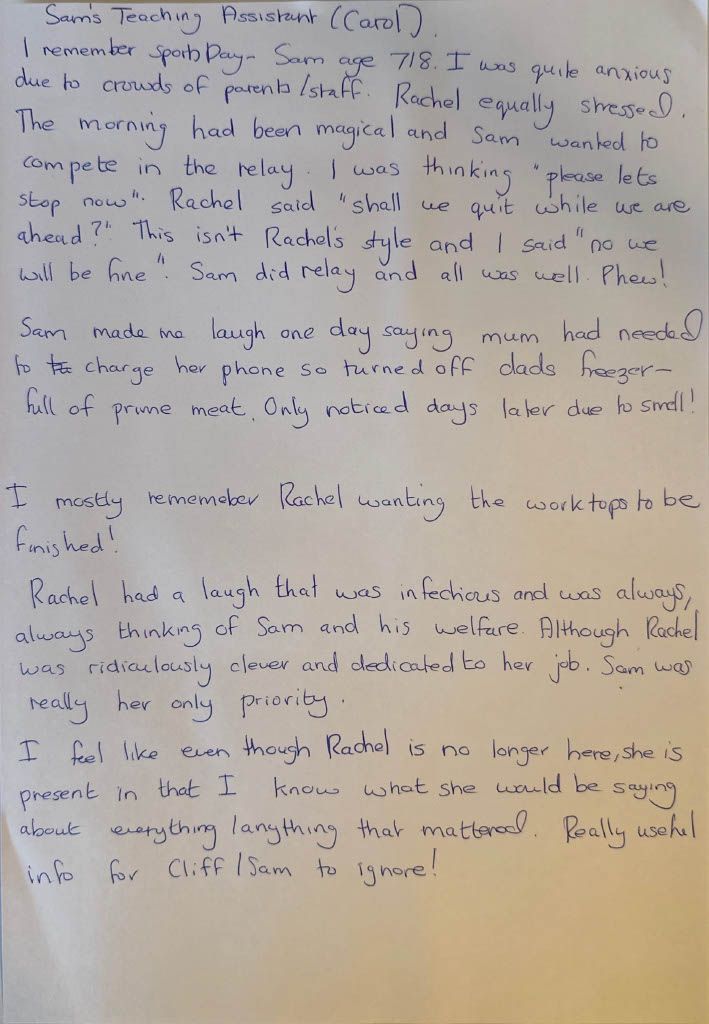 Sam's Teaching Assistant (Carol).
I remember Sports Day - Sam age 7/8. I was quite anxious
due to crowds of parents/staff. Rachel equally stressed.
The morning had been magical and Sam wanted to
compete in the relay. I was thinking "please lets
stop now". Rachel said "shall we quit while we are
ahead?" This isn't Rachel's style and I said "no we
will be fine". Sam did relay and all was well. Phew!
Sam made me laugh one day saying mum had needed
to charge her phone so turned off dads freezer -
full of prime meat. Only noticed days later due to smell!
I mostly rememeber Rachel wanting the worktops to be
finished!
Rachel had a laugh that was infectious and was always,
always thinking of Sam and his welfare. Although Rachel
was ridiculously clever and dedicated to her job. Sam was
really her only priority.
I feel like even though Rachel is no longer here, she is
present in that I know what she would be saying
about everything/anything that mattered. Really useful
info for Cliff/Sam to ignore!